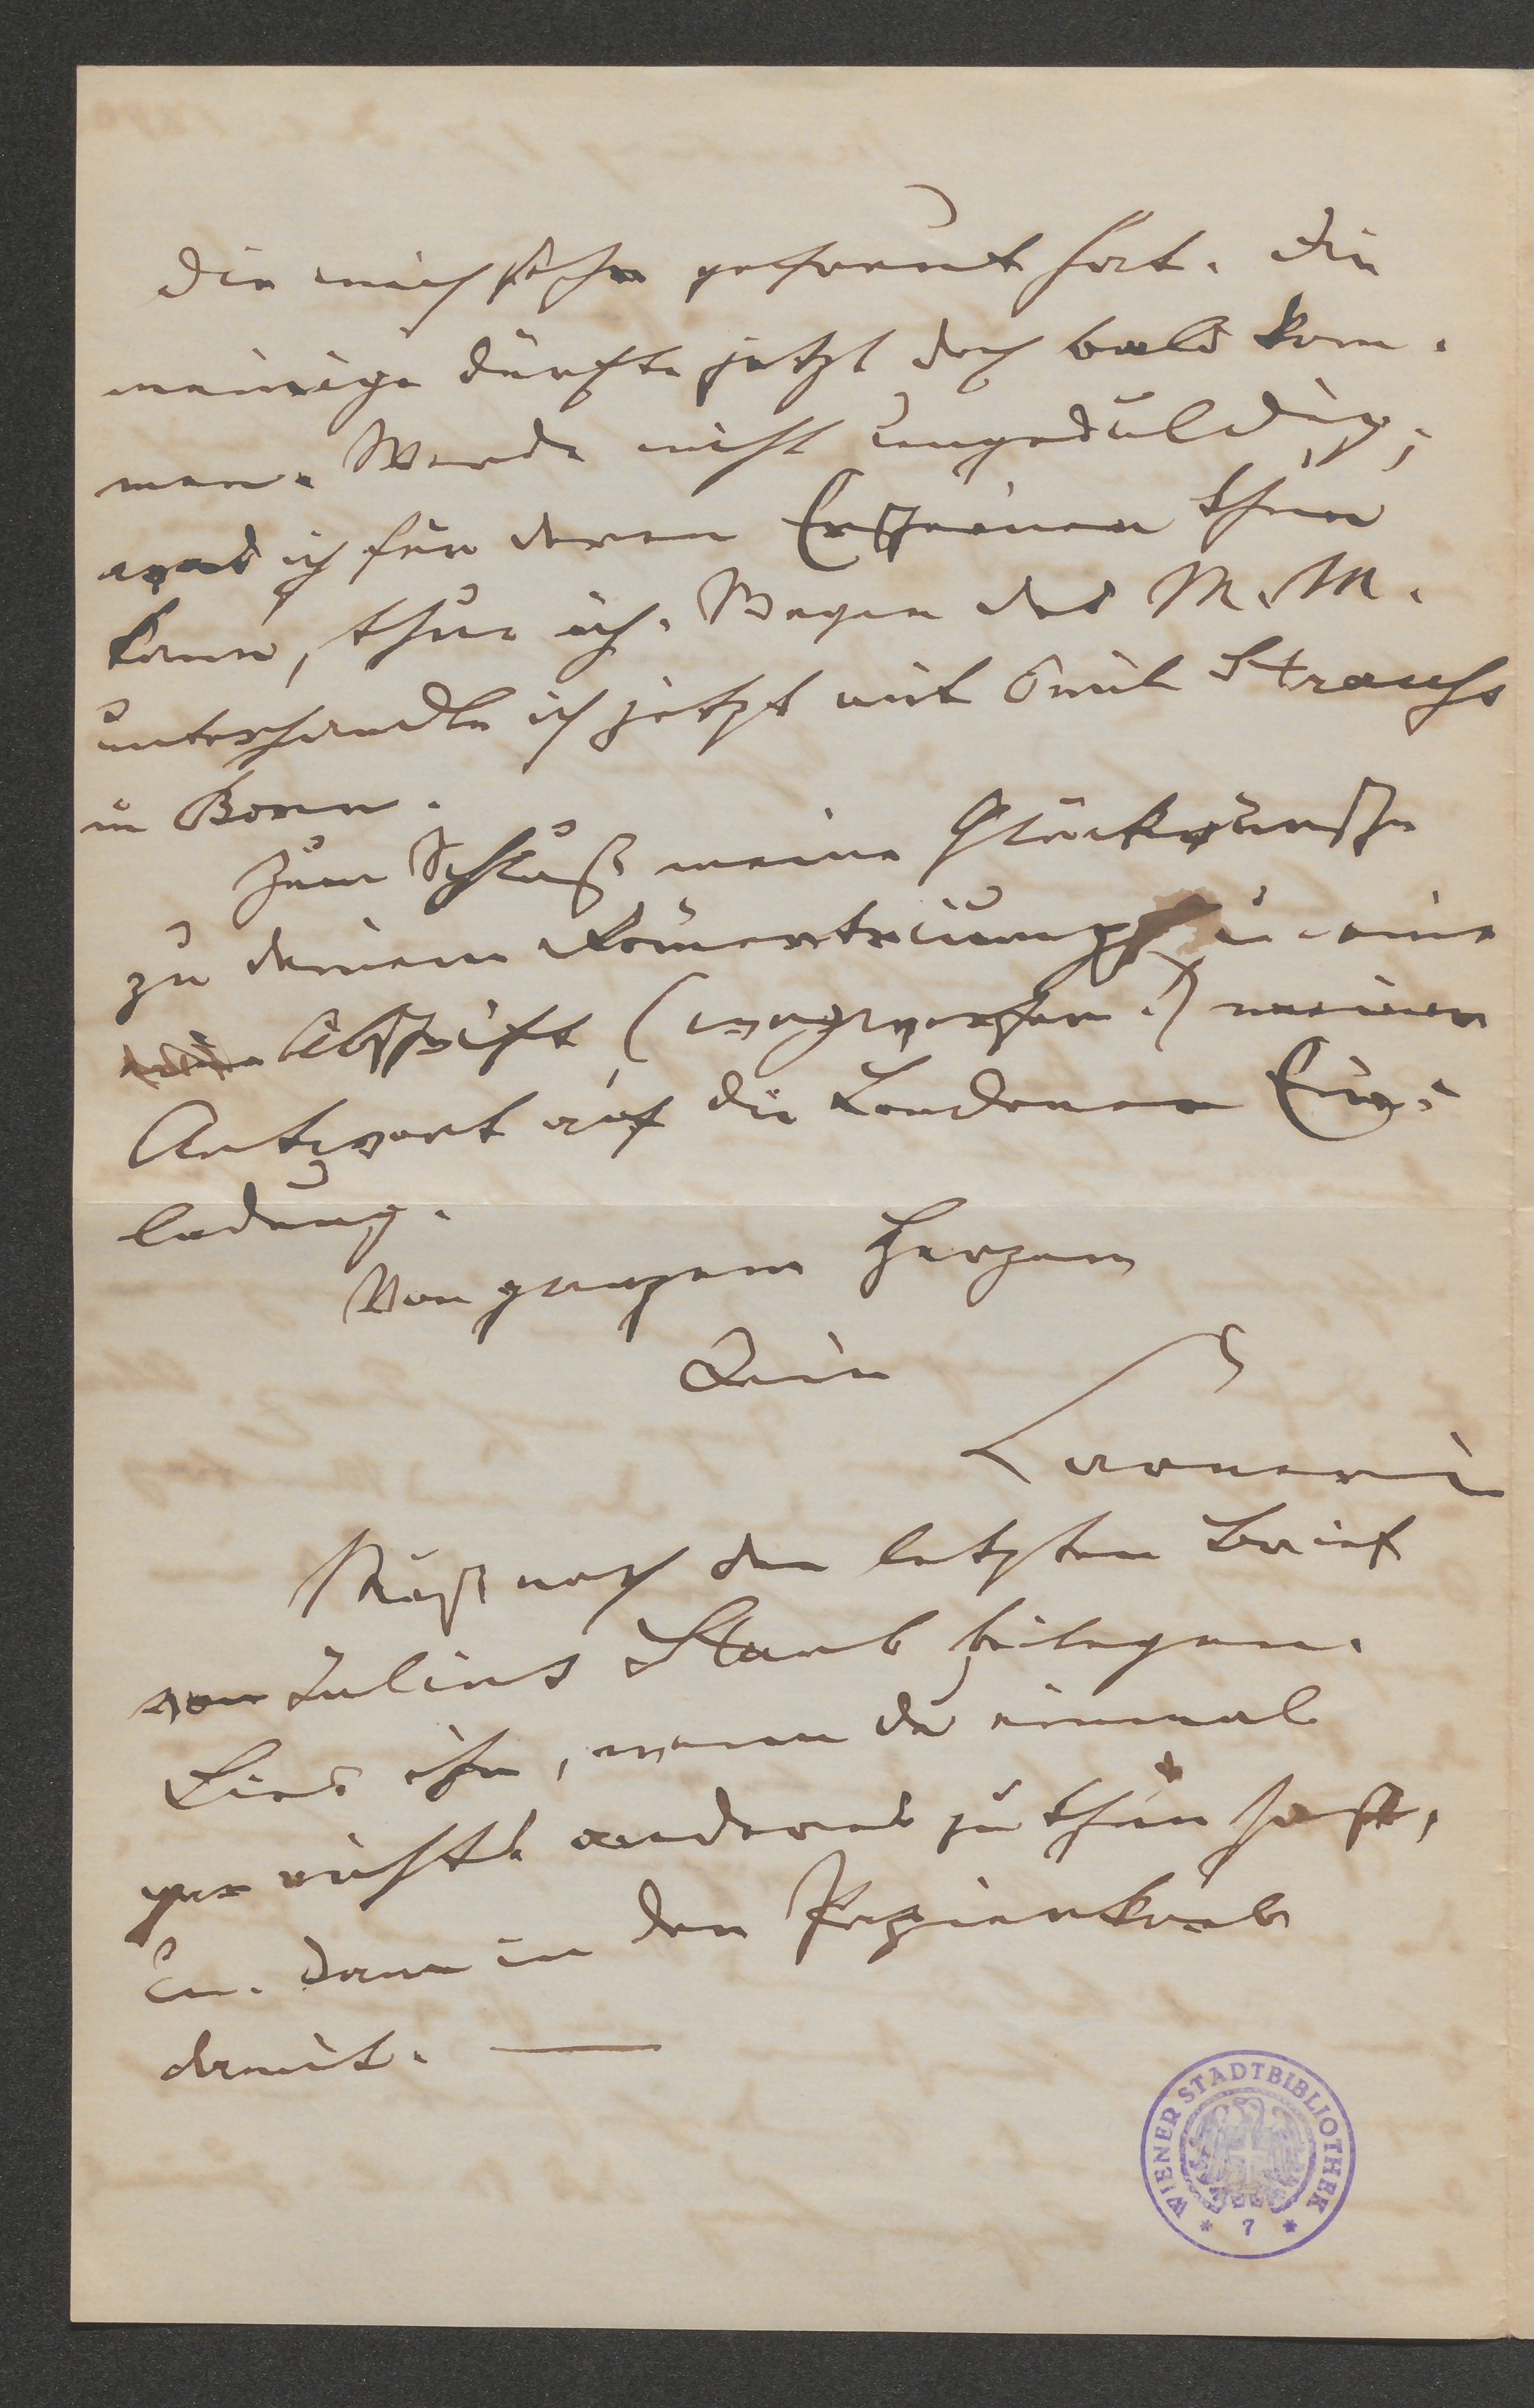 die mich sehr gefreut hat. Die
meinige dürfte jetzt doch bald kom-
men. Werde nicht ungeduldig;
was ich für deren Erscheinen thun
kann, thue ich. Wegen des M. M.
unterhandle ich jetzt mit Emil Strauss
in Bonn.
Zum Schluß meine Glückwünsche
zu deinem Römertriumph u. eine
Abschrift (wegwerfen!) meiner
Antwort auf die Londoner Ein-
ladung.
Von ganzem Herzen
Dein
Carneri
Muß noch den letzten Brief
von Julius Staub beilegen.
Lies ihn, wenn du einmal
gar nichts anderes zu thun hast,
u. dann in den Papierkorb
damit. —
WIENER STADTBIBLIOTHEK
* 7 *